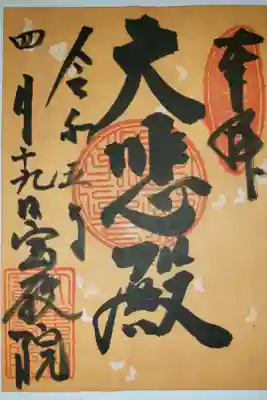 奉拝
大悲殿
令和五年
四月十九日宝厳院